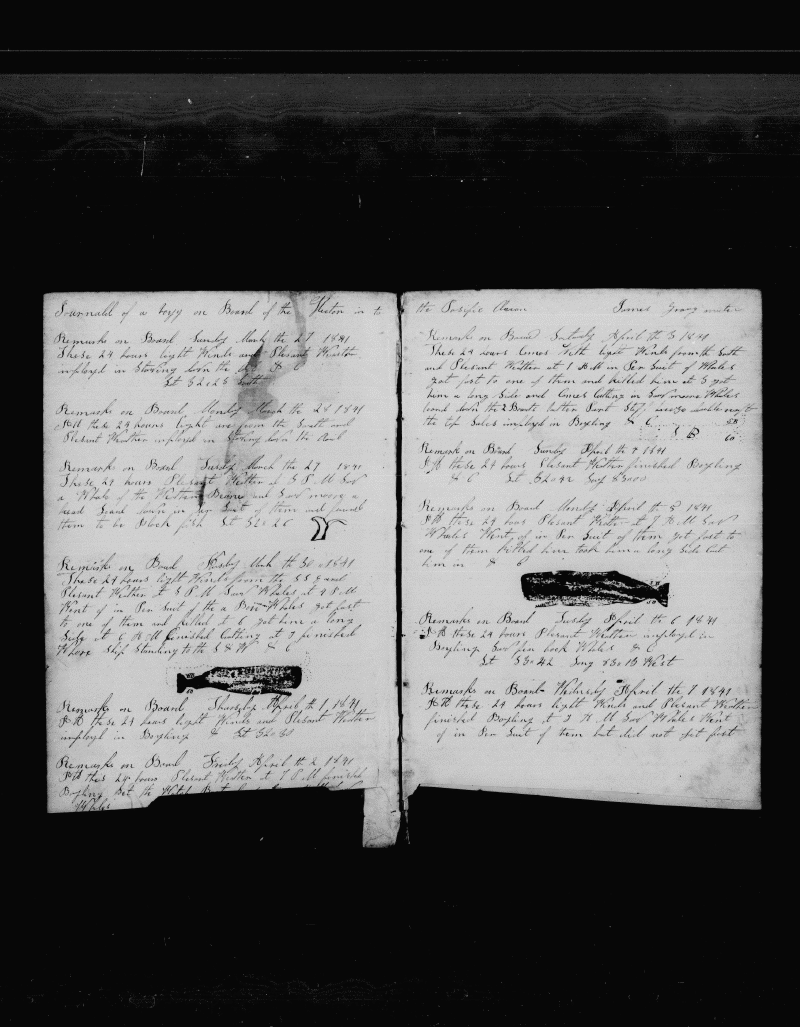 Journall of a voyg on Board of the Huston in to
Remarks on Board Sunday March the 27 1841
These 24 hours light Winds and Plesant Weather
imployed in Stowing down the &
Lat 32=28 South
Remarks on Board Monday March the 28 1841
these 24 hours light air from the South and
Plesant Weather imployed in Stowing down the
Remarks on Board Tusday March the 29 1841
These 24 hours Plesant Weather at 5 P.M Saw
a Whale of the Weather and Saw
head down in of them and found
them to be Black fish Lat 32=26
Remarks on Board 30 1841
These 24 hours light Winds from the S S E and
Plesant Wether at 5 P.M Saw Whales at P.M
Went of in Per Suit of the got fast
to one of them and killed at 6 got him a long
Side at 6 A M finished Cutting at 7 finished
Ship Standing to the S & W & C
Remarks on Board Thursday April th 1, 1841
these 24 hours light Winds and Plesant Wether
imployd in Boyling & Lat 32=30
Remarks on Board Friday April th 2 1841
these 24 hours Plesant Wether at 7 P.M finished
Boyling Set the Watch
Whales
the Pacific Ocean James Gray writer
Remarks on Board Saturdy April th 3 1841
These 24 hours Comes With light Winds from th South
and Plesant Wether at 1 P.M in Per Suit of Whales
got fast to one of them and killed him at 3 got
him a long Side and Comes Cutting in Saw more Whales
down the 2 Boats
the top Sales imployed in Boyling & C
Remark on Board Sunday April th 4 1841
these 24 hours Plesant Wether finished Boyling
& C Lat 32=42 Long 83=00
Remarks on Board Monday April th 5 1841
these 24 hours Plesant Wether at 7 A M Saw
Whales Went of in Per Suit of them got fast to
one of them killed him took him a long Side Cut
him in & C
Remarks on Board Tusdy April th 6 1841
these 24 hours Plesant Wether imployed in
Boyling Saw fin back Whales & C
Lat 33=42 Long 83=13 West
Remarks on Board Wednesdy April th 7 1841
these 24 hours light Winds and Plesant Wether
finished Boyling at 7 A M Saw Whales Went
of in Per Suit of them but did not get fast